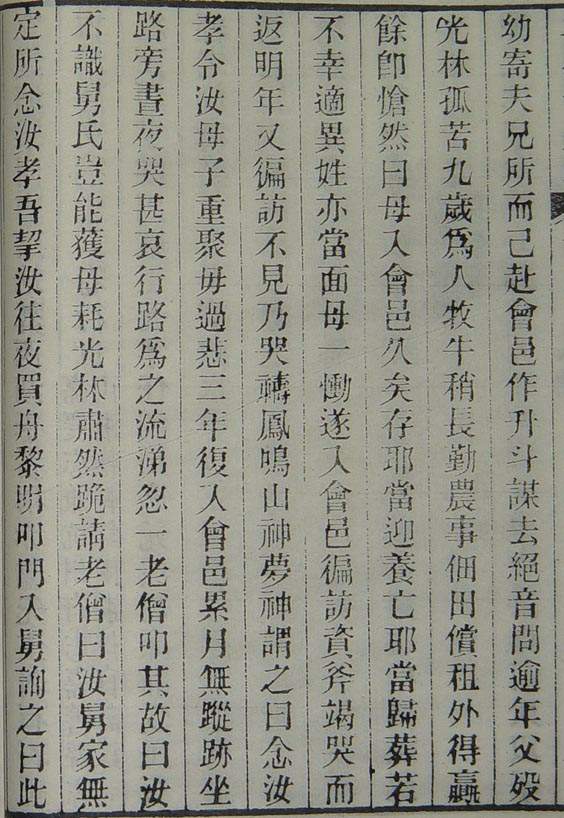 幼寄夫兄所而己赴會邑作升斗謀去絕音問逾年父歿
光林孤苦九歲爲人牧牛稍長勤農事佃田償租外得贏
餘卽愴然曰母入會邑久矣存耶當迎養亡耶當歸葬若
不幸適異姓亦當面母一慟遂入會邑徧訪資斧竭哭而
返明年又徧訪不見乃哭禱鳳鳴山神夢神謂之曰念汝
孝令汝母子重聚毋過悲三年復入會邑累月無蹤跡坐
路旁晝夜哭甚哀行路爲之流涕忽一老僧叩其故曰汝
不識舅氏豈能獲母耗光林肅然跪請老僧曰汝舅家無
定所念汝孝吾挈汝往夜買舟黎明叩門入舅詢之曰此